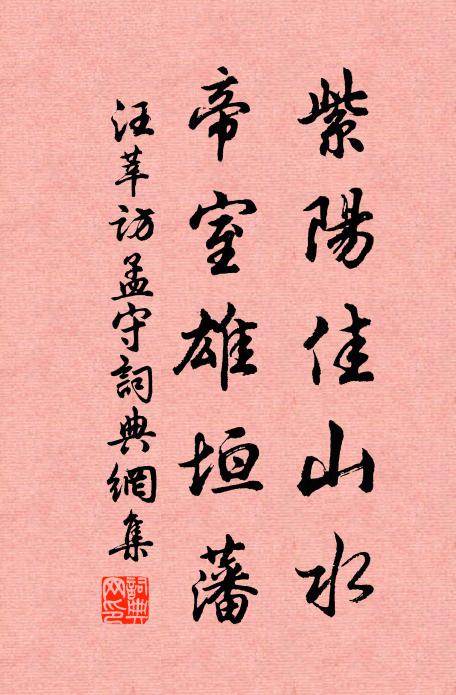 紫陽佳山水
帝室雄垣藩
汪莘訪孟守詞典網集
詞典網印